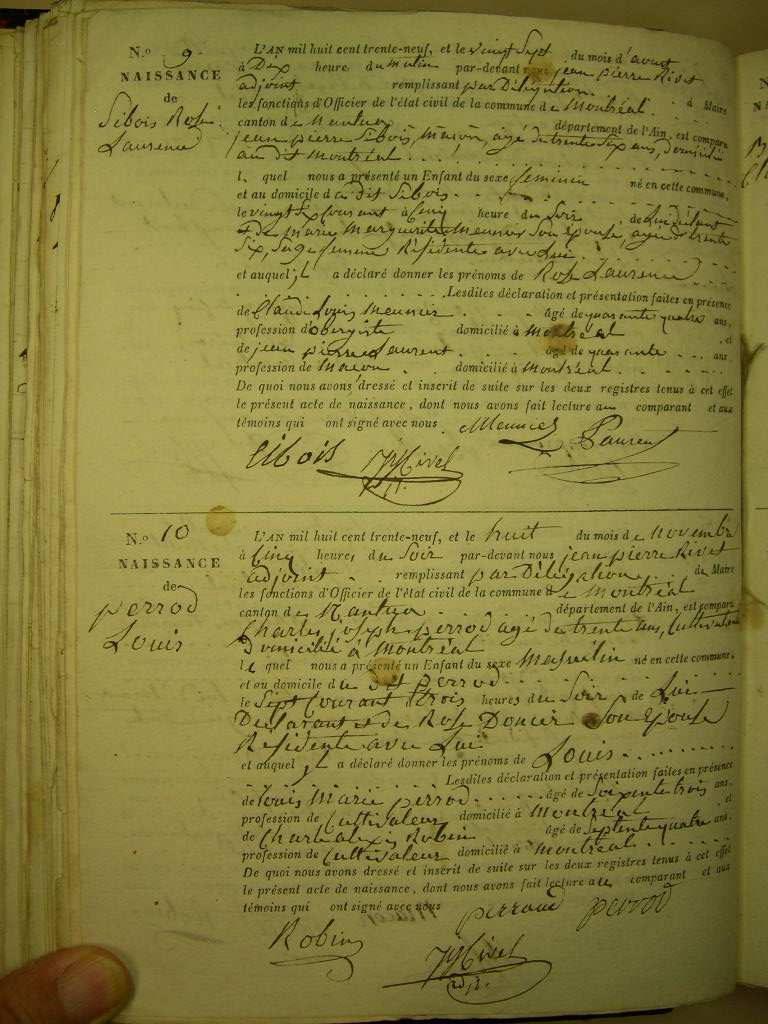 N.o 9
NAISSANCE
de
Sibois Rose
Laurence
L'AN mil huit cent trente-neuf, et le vingt Sept du mois d'aout
à Dix heure du matin par-devant nous jean pierre Rivet
adjoint remplissant par Délégation de Maire
les fonctions d'Officier de l'état civil de la commune de Montréal
canton de Nantua département de l'Ain, est comparu
jean pierre Sibois, Maçon, agé de trente Six ans, domicilié
au dit Montréal
l quel nous a présenté un Enfant du sexe feminin né en cette commune,
et au domicile du dit Sibois
le vingt Six courant à Cinq heure du Soir de Lui déclarant
et de Marie Marguerite Meunier Son épouse, agée de trente
Six, Sage femme Résidente avec Lui
et auquel il a déclaré donner les prénoms de Rose Laurence
Lesdites déclaration et présentation faites en présence
de Claude Louis Meunier âgé de quarante quatre ans,
profession d'obergiste domicilié à Montréal et
de jean pierre Laurent âgé de quarante ans
profession de Maçon domicilié à Montréal
De quoi nous avons dressé et inscrit de suite sur les deux registres tenus à cet effet
le présent acte de naissance, dont nous avons fait lecture au comparant et aux
témoins qui ont signé avec nous Meunier Laurent
Sibois JPRivet
N.o 10
NAISSANCE
de
perrod
Louis
L'AN mil huit cent trente-neuf, et le huit du mois de Novembre
à Cinq heures du Soir par-devant nous jean pierre Rivet
adjoint remplissant par Délégation de Maire
les fonctions d'Officier de l'état civil de la commune de Montréal
canton de Nantua département de l'Ain, est comparu
Charles joseph perrod agé de trente ans, Cultivateur
Domicilié à Montréal
le quel nous a présenté un Enfant du sexe Masculin né en cette commune,
et au domicile du dit perrod
le Sept Courant à trois heures du Soir de Lui
Déclarant et de Rose Doncier Son épouse
Résidente avec Lui
et auquel il a déclaré donner les prénoms de Louis
Lesdites déclaration et présentation faites en présence
de Louis Marie perrod âgé de Soixente trois ans,
profession de Cultivateur domicilié à Montréal et
de Charle alexis Robin âgé de Septente quatre ans,
profession de Cultivateur domicilié à Montréal
De quoi nous avons dressé et inscrit de suite sur les deux registres tenus à cet effet
le présent acte de naissance, dont nous avons fait lecture au comparant et aux
témoins qui ont signé avec nous perroud perrod
Robin JPRivet